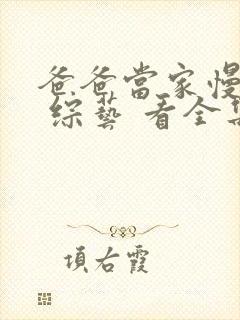 爸爸當家慢
綜藝 看全集
項右霞